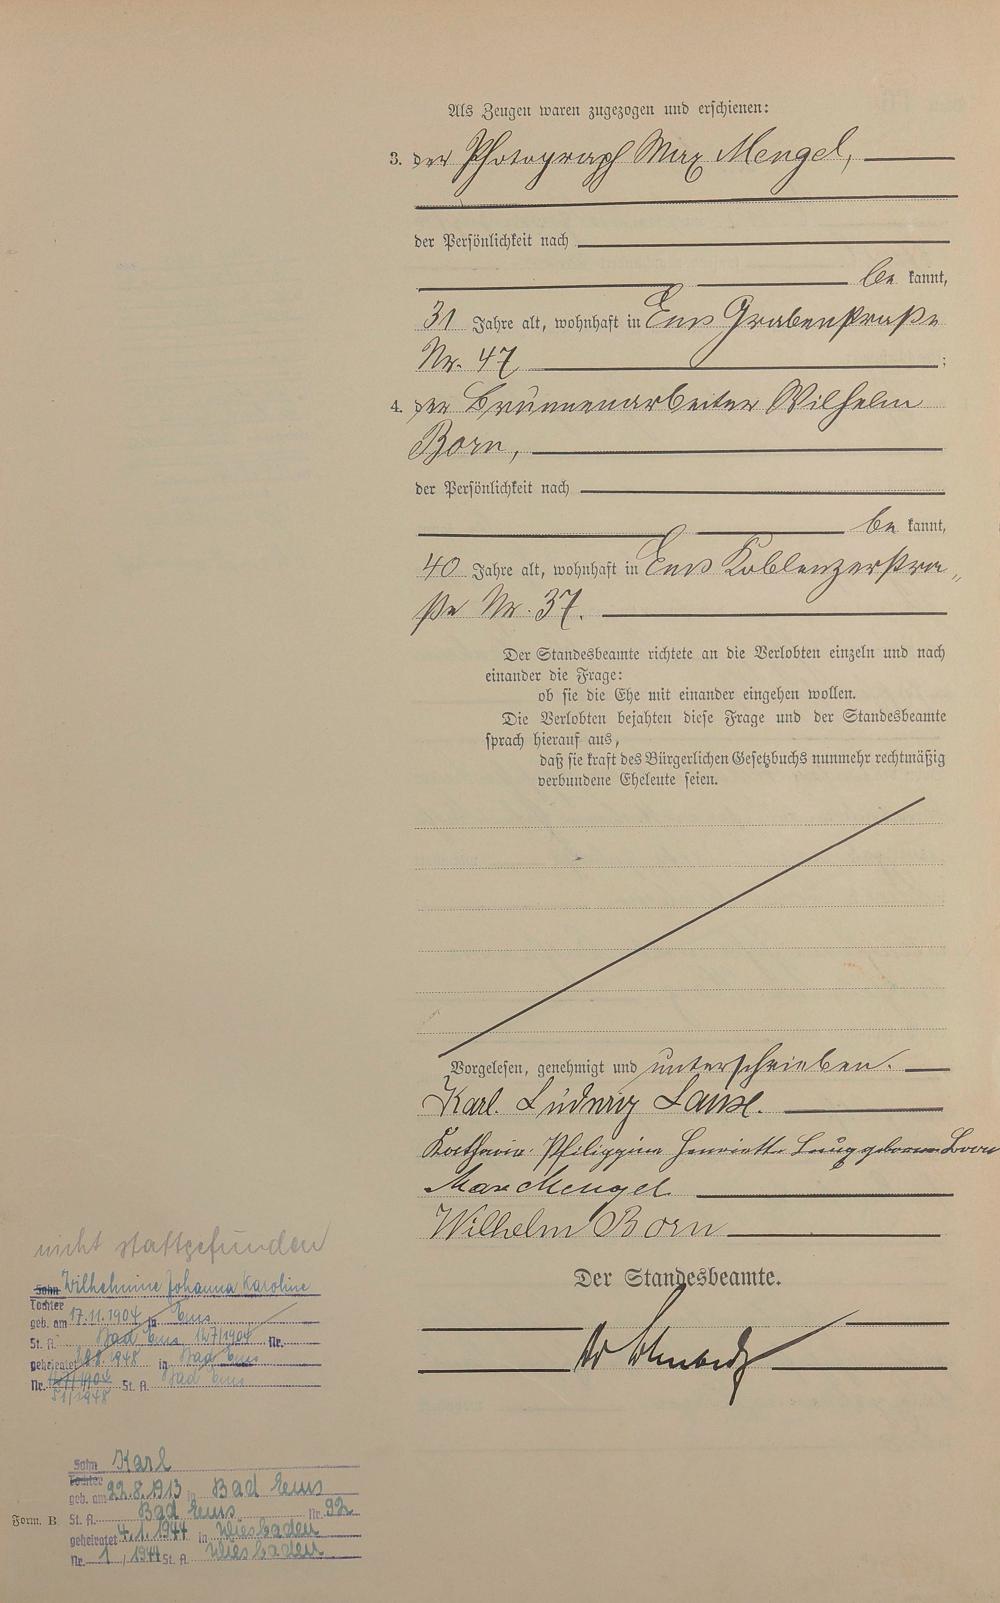 Als Zeugen waren zugezogen und erschienen:
3. der Photograph Max Mengel,
der Persönlichkeit nach
be kannt,
31 Jahre alt, wohnhaft in Ems Grabenstraße
Nr. 47 ;
4. der Brunnenarbeiter Wilhelm
Born,
der Persönlichkeit nach
be kannt,
40 Jahre alt, wohnhaft in Ems Koblenzerstra„
ße Nr. 37.
Der Standesbeamte richtete an die Verlobten einzeln und nach
einander die Frage:
ob sie die Ehe mit einander eingehen wollen.
Die Verlobten bejahten diese Frage und der Standesbeamte
sprach hierauf aus,
daß sie kraft des Bürgerlichen Gesetzbuchs nunmehr rechtmäßig
verbundene Eheleute seien.
Vorgelesen, genehmigt und unterschrieben.
Karl Ludwig
Philippine Henriette geborene Born
Max Mengel
Wilhelm Born
Der Standesbeamte.
nicht stattgefunden
Sohn Wilhelmine Johanna Karoline
Tochter
geb. am 17.11.1904 in Ems
St. A. Bad Ems 127/1904 Nr.
geheiratet 1948 in Bad Ems
Nr. 51/1948 St. A. Bad Ems
Sohn Karl
Tochter
geb. am 22.8.1913 in Bad Ems
Form. B. St. A. Bad Ems Nr. 92
geheiratet 4.1.1944 in Wiesbaden
Nr. 1/1944 St. A. Wiesbaden